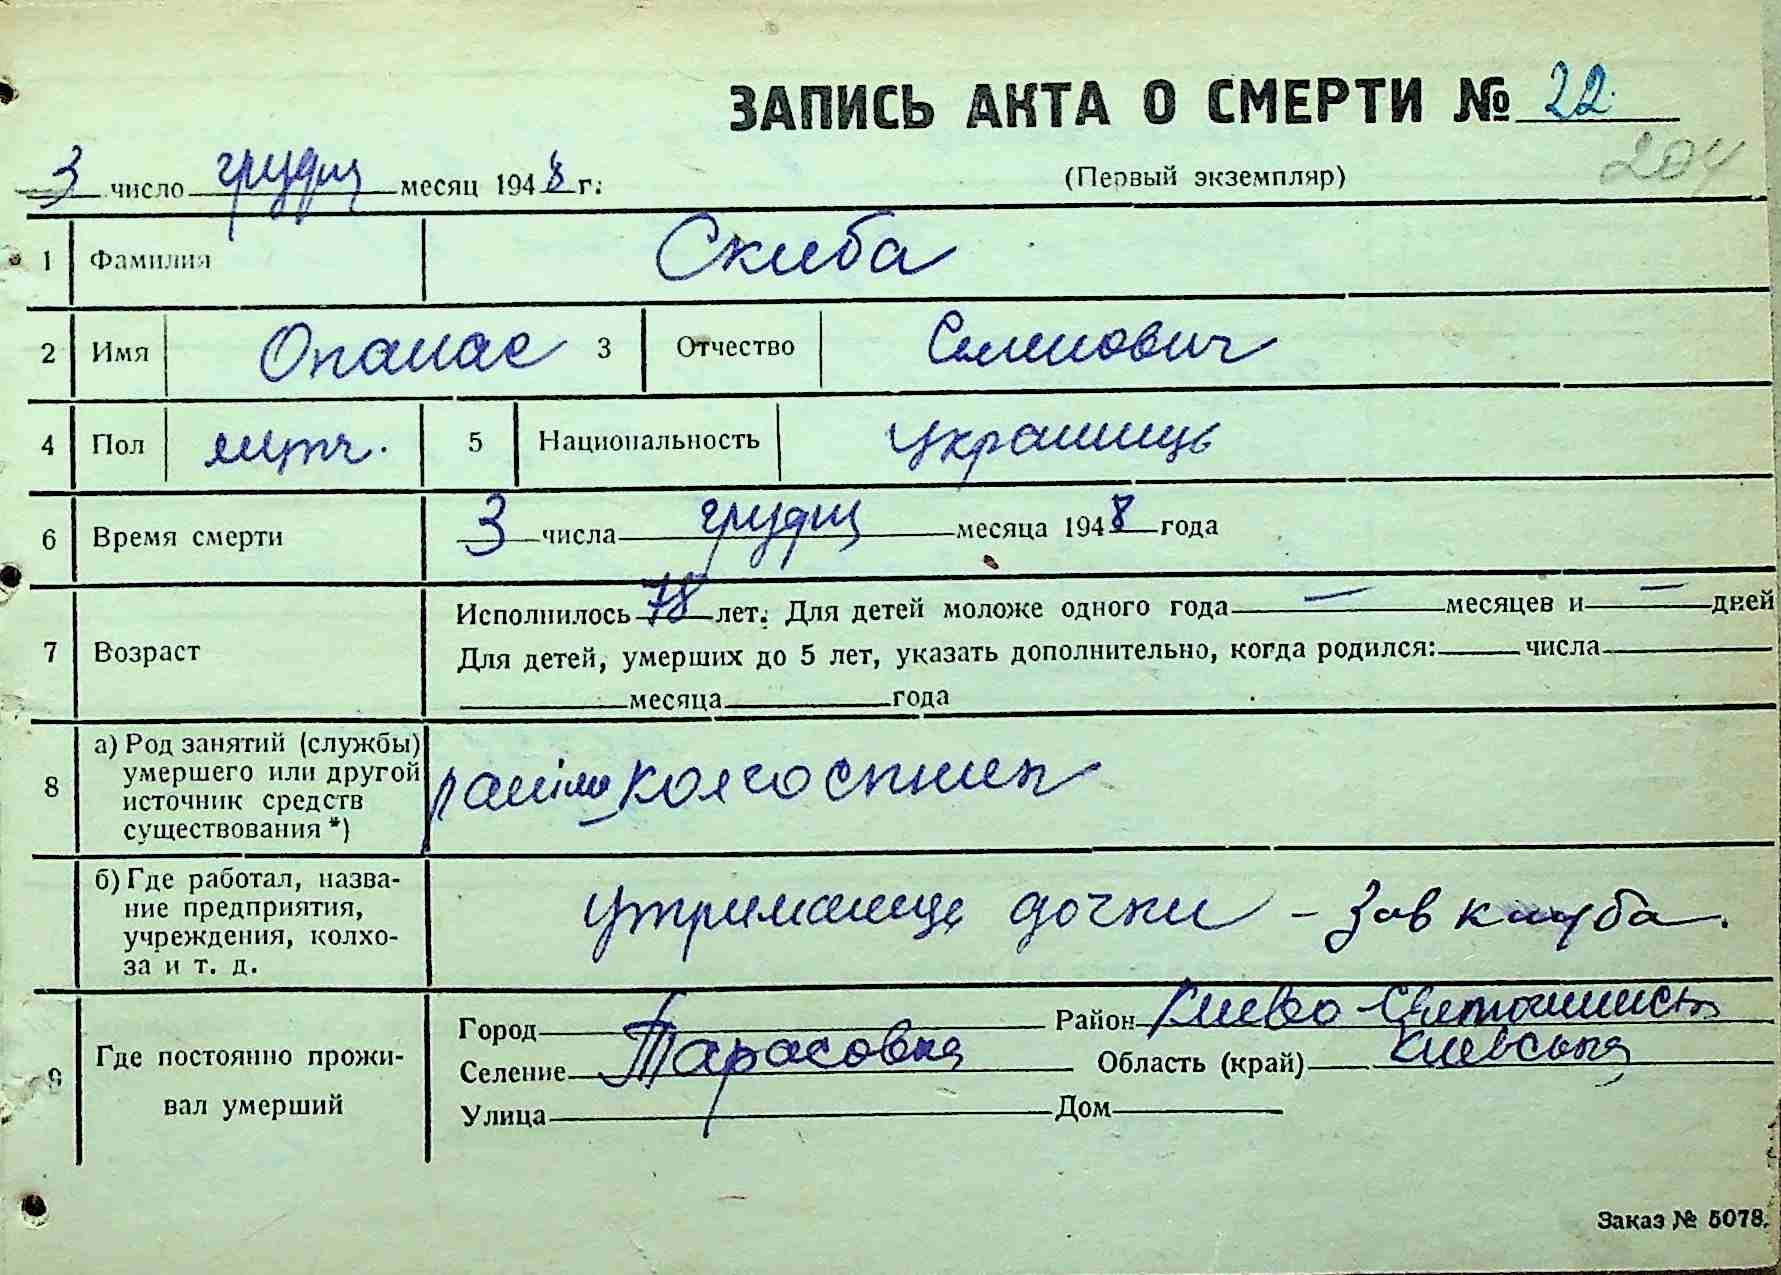 ЗАПИСЬ АКТА О СМЕРТИ № 22.
204
3 число грудня месяц 1948 г.
(Первый экземпляр)
1 Фамилия Скиба
2 Имя Опанас 3 Отчество Семенович
4 Пол 5 Национальность Українець
6 Время смерти 3 числа грудня месяца 1948 года
7 Возраст Исполнилось 78 лет. Для детей моложе одного года — месяцев и — дней
Для детей, умерших до 5 лет, указать дополнительно, когда родился: числа
месяца года
8 а) Род занятий (службы)
умершего или другой
источник средств
существования *)
раніш колгоспник
б) Где работал, назва-
ние предприятия,
учреждения, колхо-
за и т. д.
утриманець дочки - Зав клуба.
9 Где постоянно прожи-
вал умерший
Город Район Києво-Святошинськ
Селение Тарасовка Область (край) Київська
Улица Дом
Заказ № 5078.